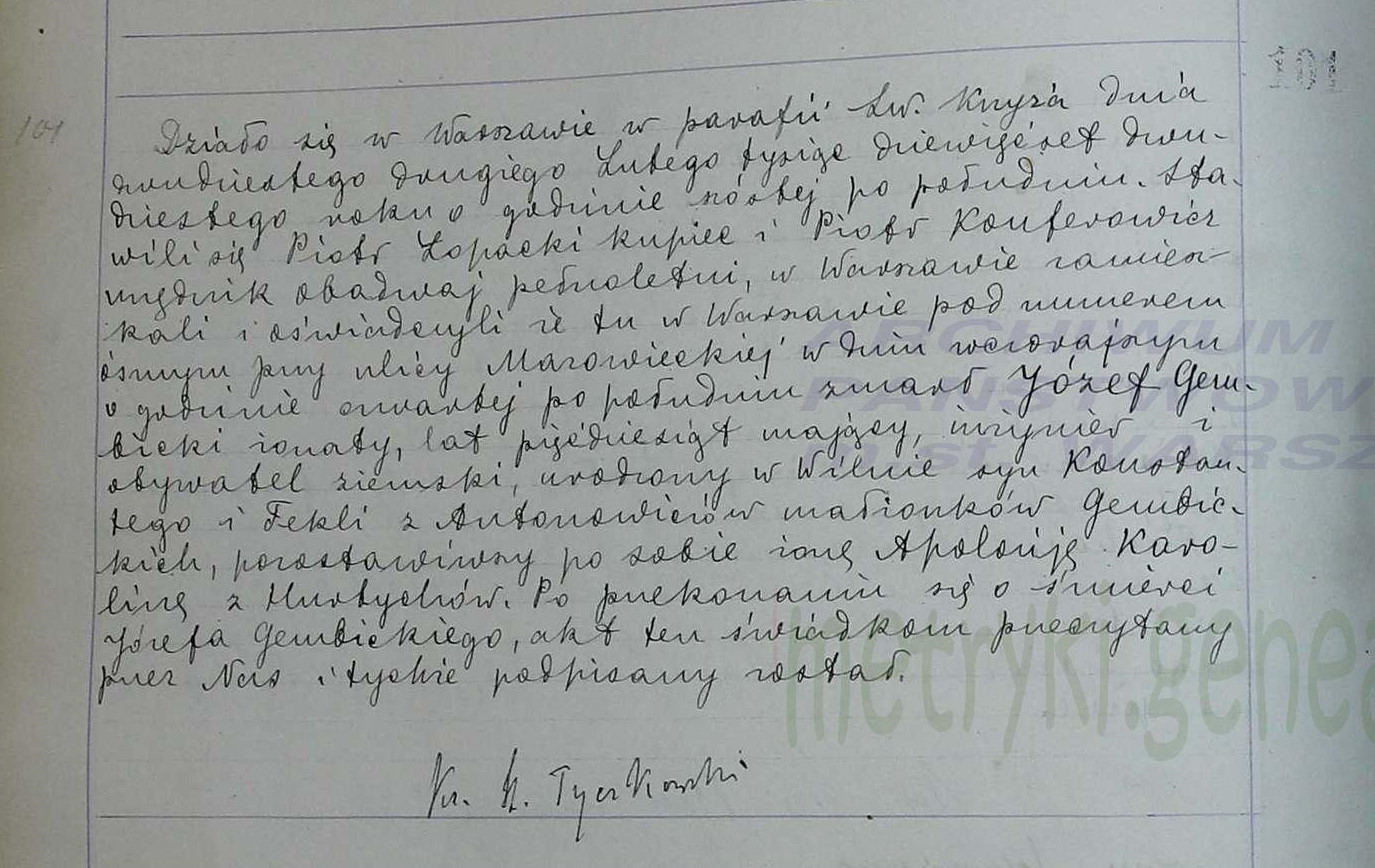 101
Działo się w Warszawie w parafii Św. Krzyża dnia
dwudziestego drugiego Lutego tysiąc dziewięćset dwu-
dziestego roku o godzinie szóstej po południu. Sta-
wili się Piotr Łopacki kupiec i Piotr Konferowicz
urzędnik obadwaj pełnoletni, w Warszawie zamiesz-
kali i oświadczyli że tu w Warszawie pod numerem
ósmym przy ulicy Mazowieckiej w dniu wczorajszym
o godzinie czwartej po południu zmarł Józef Gem-
bicki żonaty, lat pięćdziesiąt mający, inżynier i
obywatel ziemski, urodzony w Wilnie syn Konstan-
tego i Tekli z Antonowiczów małżonków Gembic-
kich, pozostawiwszy po sobie żonę Apolonję Karo-
linę z Hurtychów. Po przekonaniu się o śmierci
Józefa Gembickiego, akt ten świadkom przeczytany
przez Nas i tychże podpisany został.
Ks. H. Tyczkowski
ARCHIWUM
PAŃSTWOW
m.st. WARSZ
metryki.genea